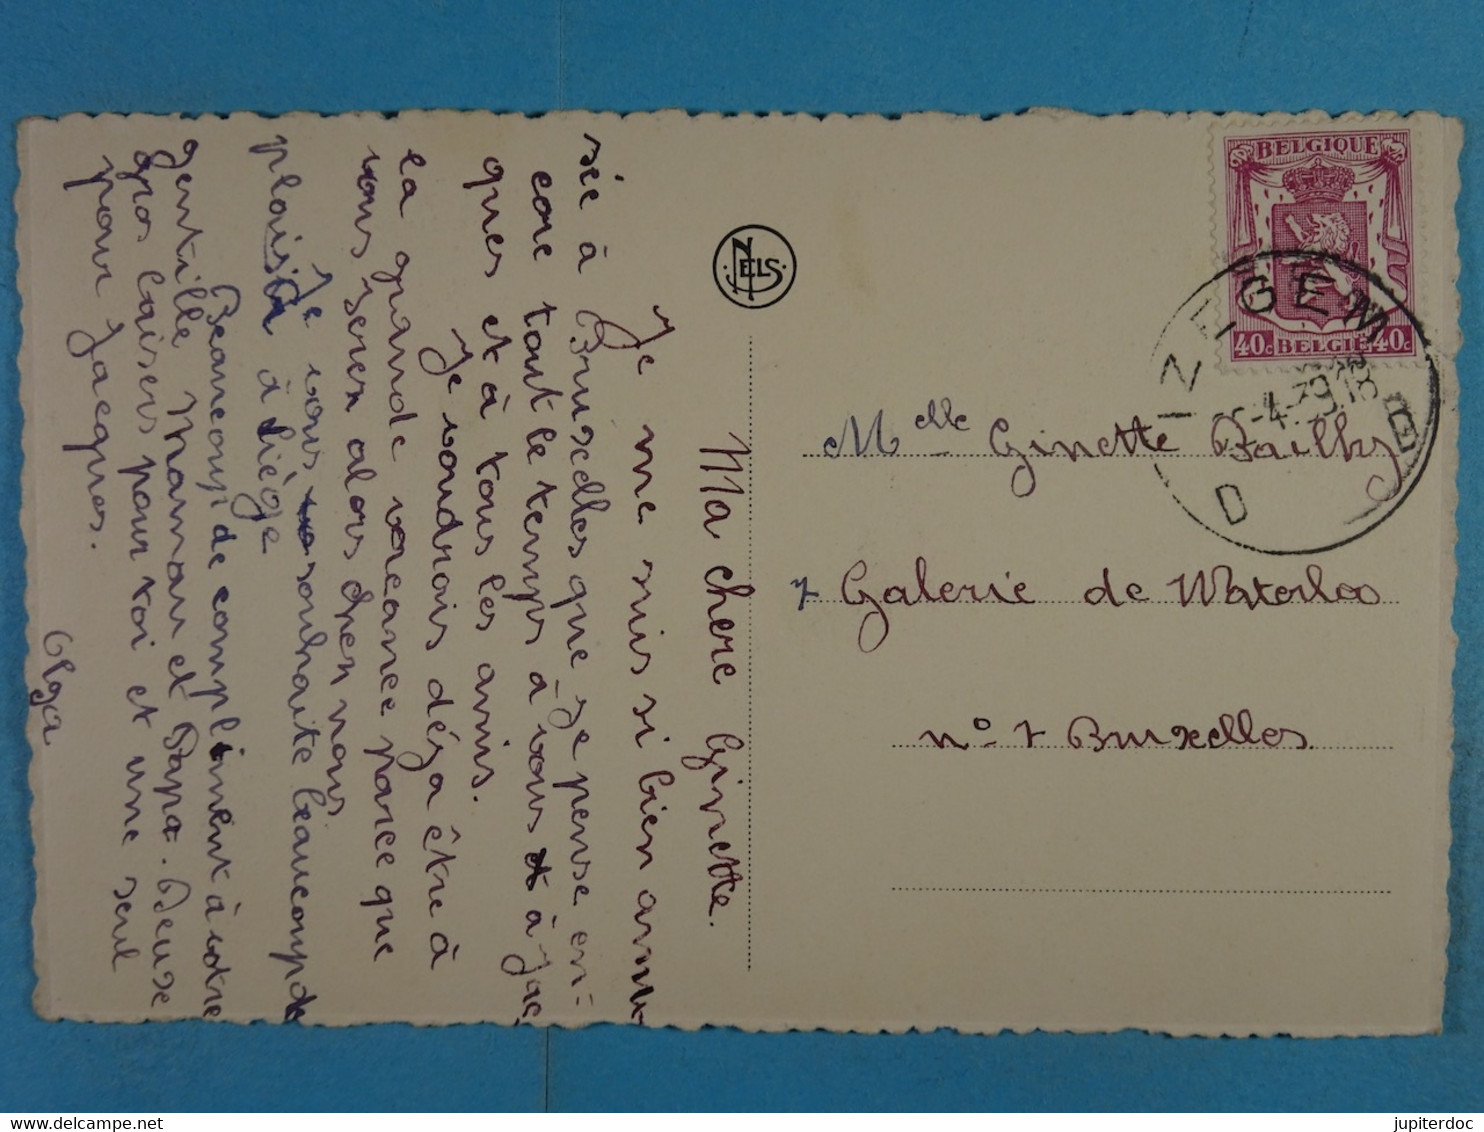 Ma chere Ginette.
Je me suis si bien amu
sée à Bruxelles que je pense en=
core tout le temps à vous et à Jac
ques et à tous les amis.
Je voudrais déja être à
la grande vacance parce que
vous serez alors chez nous.
Je vous souhaite beaucoup de
plaisir à Liège
Beaucoup de compliment à votre
gentille Maman et Papa. Deuse
gros baisers pour toi et une seul
pour Jacques.
Olga
NELS
BELGIQUE
40c BELGIE 40c
IZEGEM
-4-39 18
D
B
Melle Ginette Pailhy
7 Galerie de Waterloo
no 7 Bruxelles
jupiterdoc